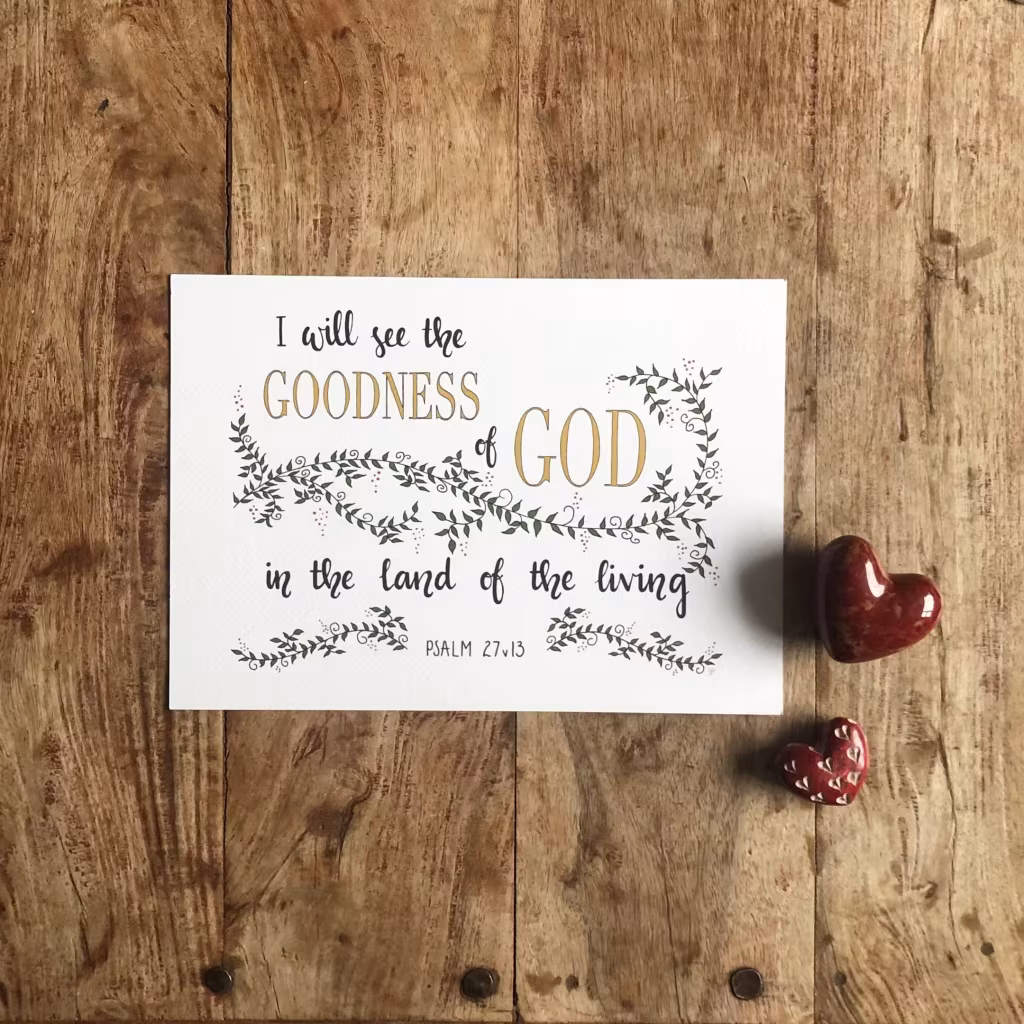 I will see the
GOODNESS
of GOD
in the land of the living
PSALM 27v13